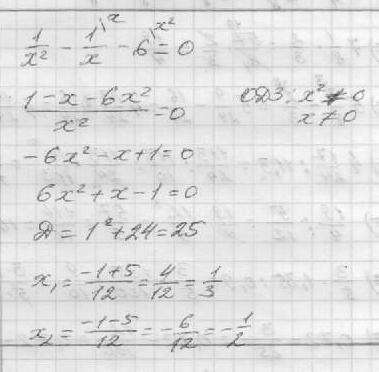 1/x² - 1\x/x - 6\x² = 0
(1 - x - 6x²)/x² = 0
ОДЗ: x² ≠ 0
x ≠ 0
-6x² - x + 1 = 0
6x² + x - 1 = 0
D = 1² + 24 = 25
x₁ = (-1+5)/12 = 4/12 = 1/3
x₂ = (-1-5)/12 = -6/12 = -1/2